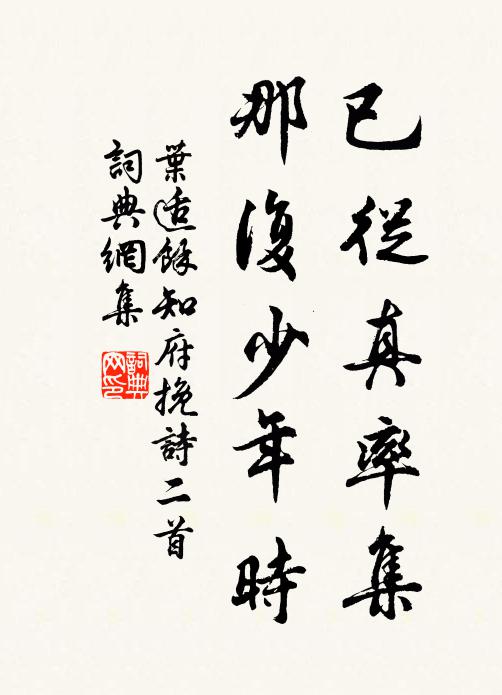 已從真率集
那復少年時
葉适餘知府挽詩二首
詞典網集
詞典网印